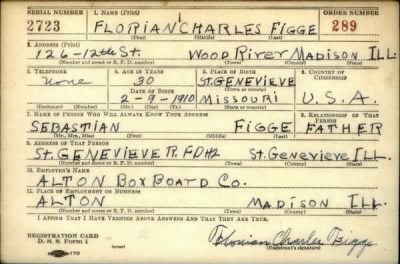 SERIAL NUMBER 1. NAME (Print) ORDER NUMBER
2723 FLORIAN CHARLES FIGGE 289
(First) (Middle) (Last)
2. ADDRESS (Print)
126-12th St. Wood River Madison Ill.
(Number and street or R. F. D. number) (Town) (County) (State)
3. TELEPHONE 4. AGE IN YEARS 5. PLACE OF BIRTH 6. COUNTRY OF CITIZENSHIP
None 30 St. GENEVIEVE
DATE OF BIRTH (Town or county)
2-9-1910 Missouri U.S.A.
(Exchange) (Number) (Mo.) (Day) (Yr.) (State or country)
7. NAME OF PERSON WHO WILL ALWAYS KNOW YOUR ADDRESS 8. RELATIONSHIP OF THAT PERSON
SEBASTIAN FIGGE FATHER
(Mr., Mrs., Miss) (First) (Middle) (Last)
9. ADDRESS OF THAT PERSON
St. GENEVIEVE St. Genevieve Ill.
(Number and street or R. F. D. number) (Town) (County) (State)
10. EMPLOYER'S NAME
ALTON BOX BOARD Co.
11. PLACE OF EMPLOYMENT OR BUSINESS
ALTON MADISON Ill.
(Number and street or R. F. D. number) (Town) (County) (State)
I AFFIRM THAT I HAVE VERIFIED ABOVE ANSWERS AND THAT THEY ARE TRUE.
REGISTRATION CARD
D. S. S. Form 1 (over) Florian Charles Figge
(Registrant's signature)